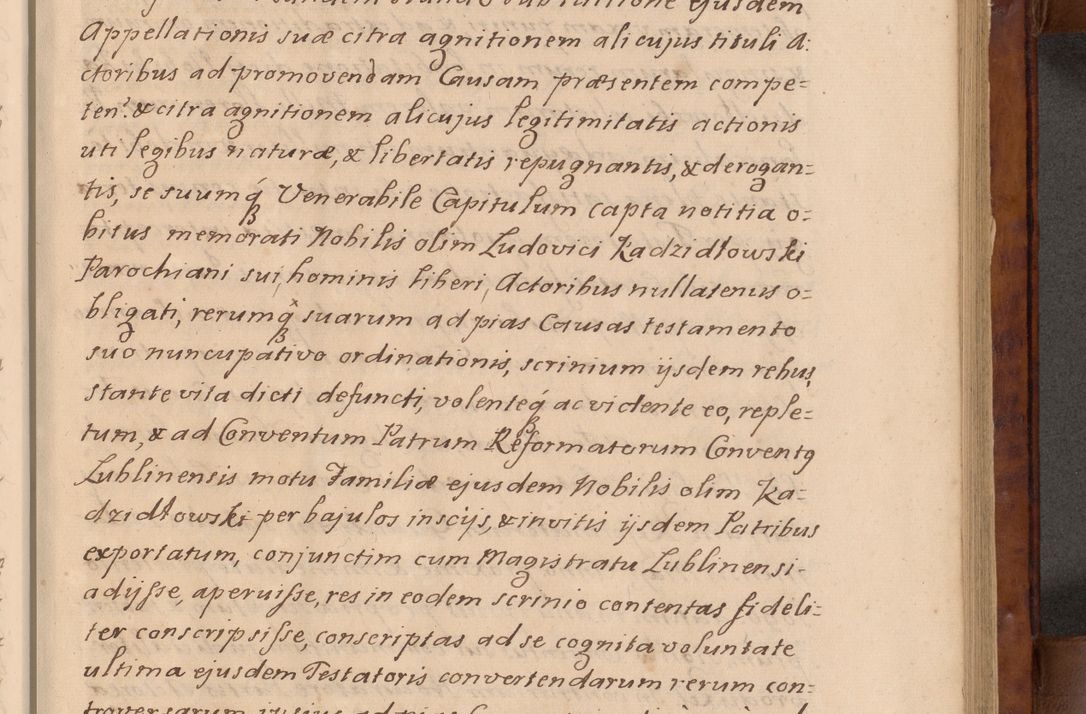 ejusdem
Appellationis suæ citra agnitionem alicujus tituli A:
ctoribus ad promovendam Causam præsentem compe=
ten: & citra agnitionem alicujus legitimitatis actionis
uti legibus naturæ, & libertatis repugnantis, & derogan=
tis, se suumq́ Venerabile Capitulum capta notitia o=
bitus memorati Nobilis olim Ludovici Kadzidłowski
Parochiani sui, hominis liberi, Actoribus nullatenus o=
bligati, rerumq́ suarum ad pias Causas testamento
suo nuncupativo ordinationis, scrinium ijsdem rebus,
stante vita dicti defuncti, volenteq́ ac vidente eo, reple=
tum, & ad Conventum Patrum Reformatorum Conventꝰ
Lublinensis motu Familiæ ejusdem Nobilis olim Ka=
dzidłowski per bajulos inscijs, & invitis ijsdem Patribus
exportatum, conjunctim cum Magistratu Lublinensi-
adijsse, aperuisse, res in eodem scrinio contentas fideli=
ter conscripsisse, conscriptas ad se cognita voluntate
ultima ejusdem Testatoris convertendarum rerum con=
troversarum